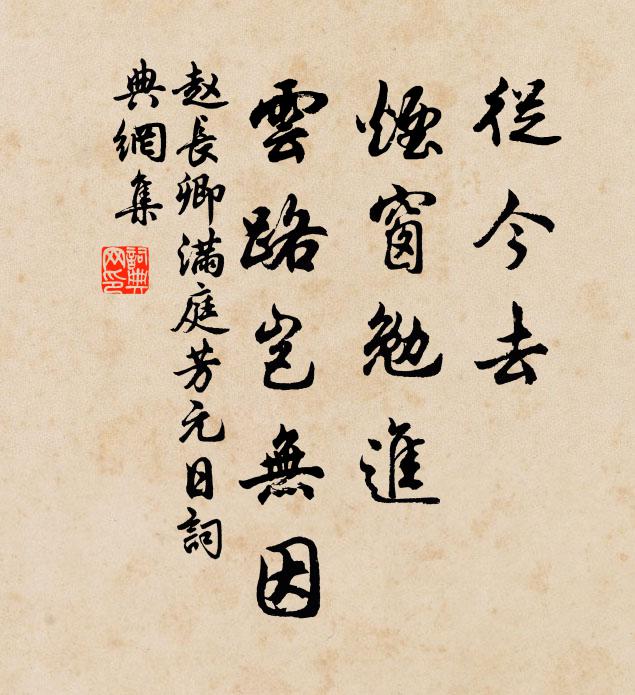 從今去
煙窗勉進
雲路豈無因
赵長卿滿庭芳元日詞
典網集
詞典网印